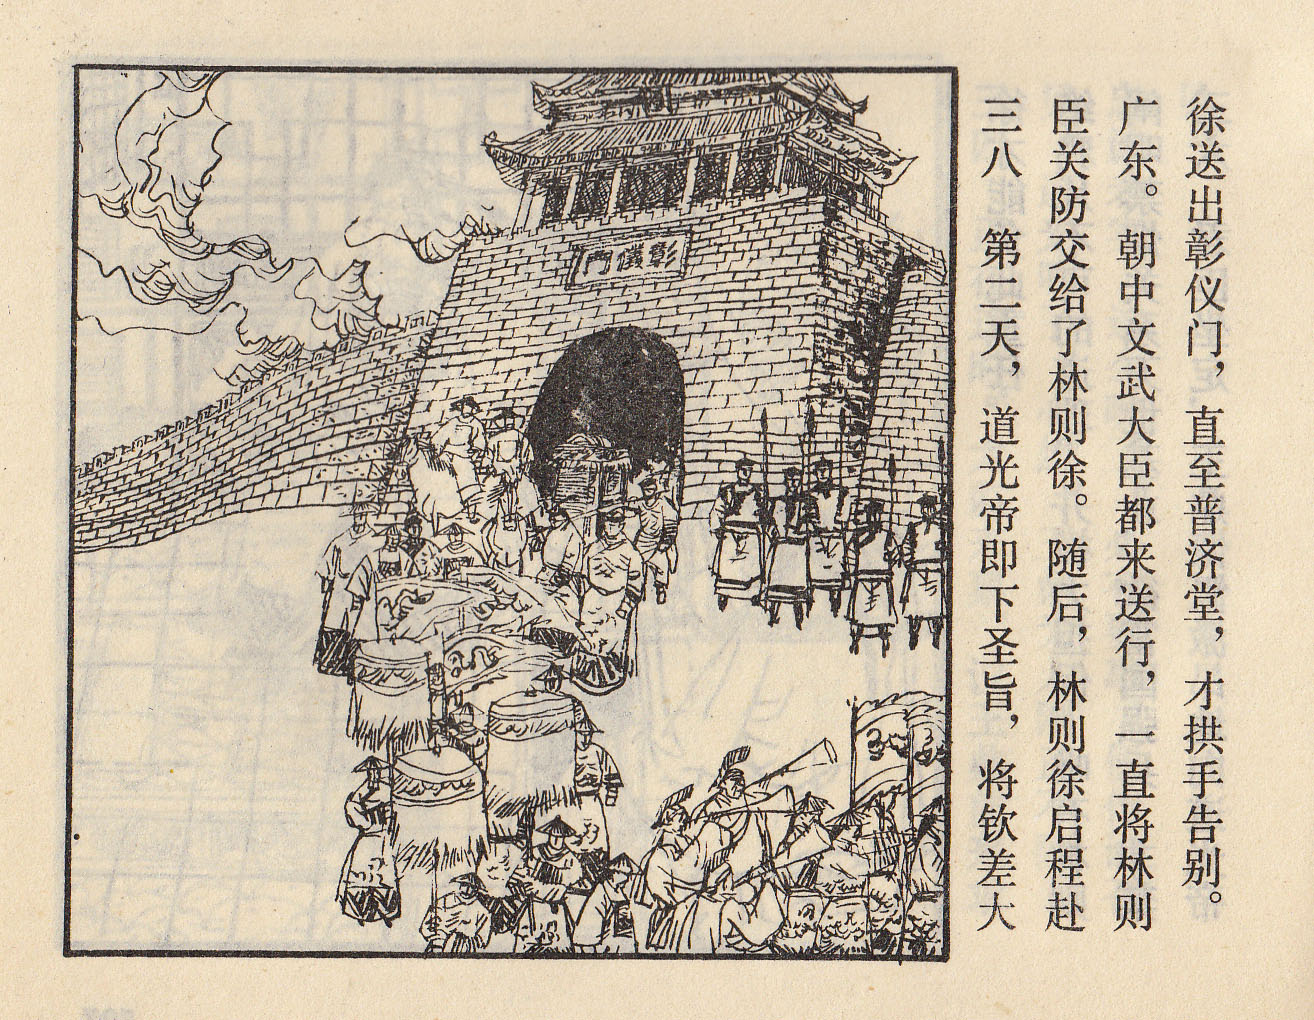 三八 第二天，道光帝即下圣旨，将钦差大
臣关防交给了林则徐。随后，林则徐启程赴
广东。朝中文武大臣都来送行，一直将林则
徐送出彰仪门，直至普济堂，才拱手告别。
彰儀門